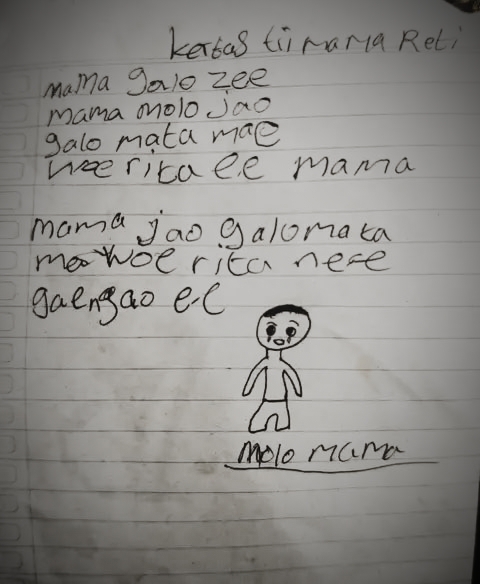 kertas tii mama Reti
mama galo zee
mama molo jao
galo mata mae
woe rita e.e mama
mama jao galo mata
mae woe rita ne-e
gaengao e-e
molo mama